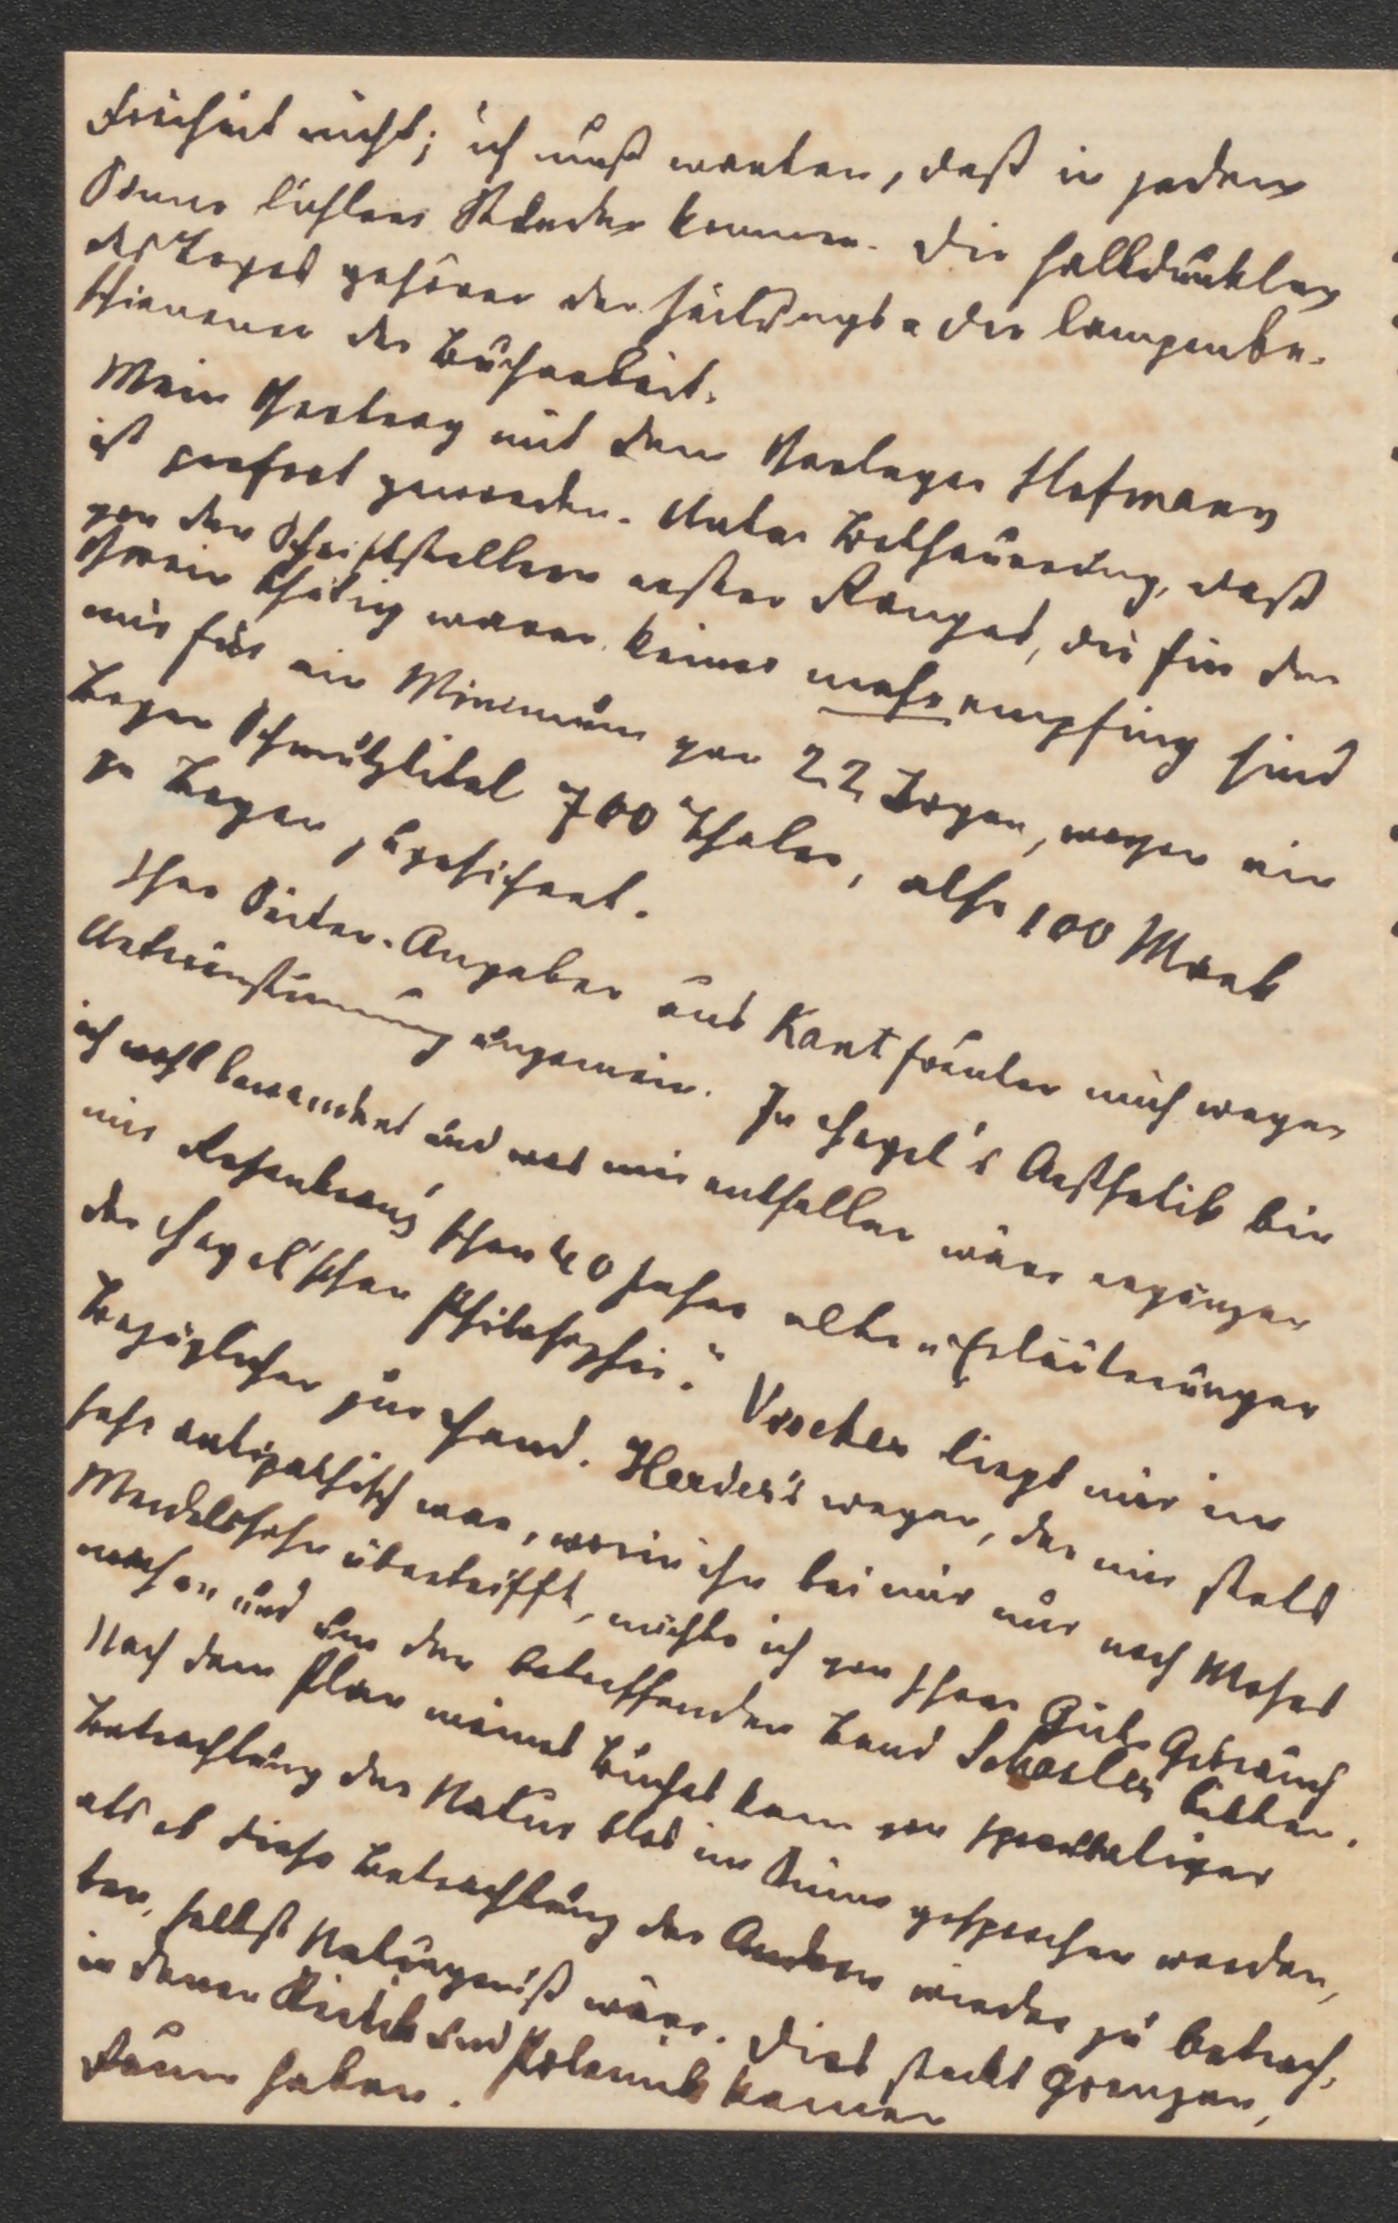 Freiheit nicht; ich muß warten, daß in jedem
Sinne lichtere Stunden kommen. Die halbdunklen
des Tages gehören der Zeitungs- u. die lampenbe-
schienenen der Bucharbeit.
Mein Vertrag mit dem Verleger Hofmann
ist perfect geworden. Unter Betheuerung, daß
von den Schriftstellern ersten Ranges, die für den
Verein thätig waren, keiner mehr empfing sind
mir für ein Minimum von 22 Bogen, wegen ein
Bogen Schmutztitel 700 Thaler, also 100 Mark
pr Bogen, gesichert.
Ihre Seiten-Angaben aus Kant freuten mich wegen
Uebereinstimmung ungemein. In Hegel's Aesthetik bin
ich wohl bewandert und was mir entfallen wäre ergänzen
mir Rosenkranz' schon 40 Jahre alte „Erläuterungen
der Hegel'schen Philosophie." Vischer liegt mir im
Bezüglichen zur Hand. Herder's wegen, der mir stets
sehr antipathisch war, worin ihn bei mir nur noch Moses
Mendelssohn übertrifft, möchte ich von Ihrer Güte Gebrauch
machen und um den betreffenden Band Schasler bitten.
Nach dem Plan meines Buches kann von spezieller
Betrachtung der Natur blos im Sinne gesprochen werden,
als ob diese Betrachtung der Andern wieder zu betrach-
ten, selbst Naturgenuß wäre. Dies steckt Grenzen,
in denen Kritik und Polemik keinen
Raum haben.